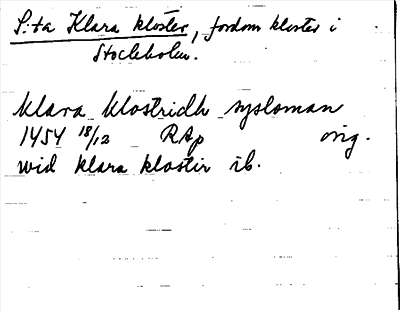 S:ta Klara kloster, fordom kloster i
Stockholm.
klara klostridh sysloman
1454 18/12 RAp orig.
wid klara klostir ib.